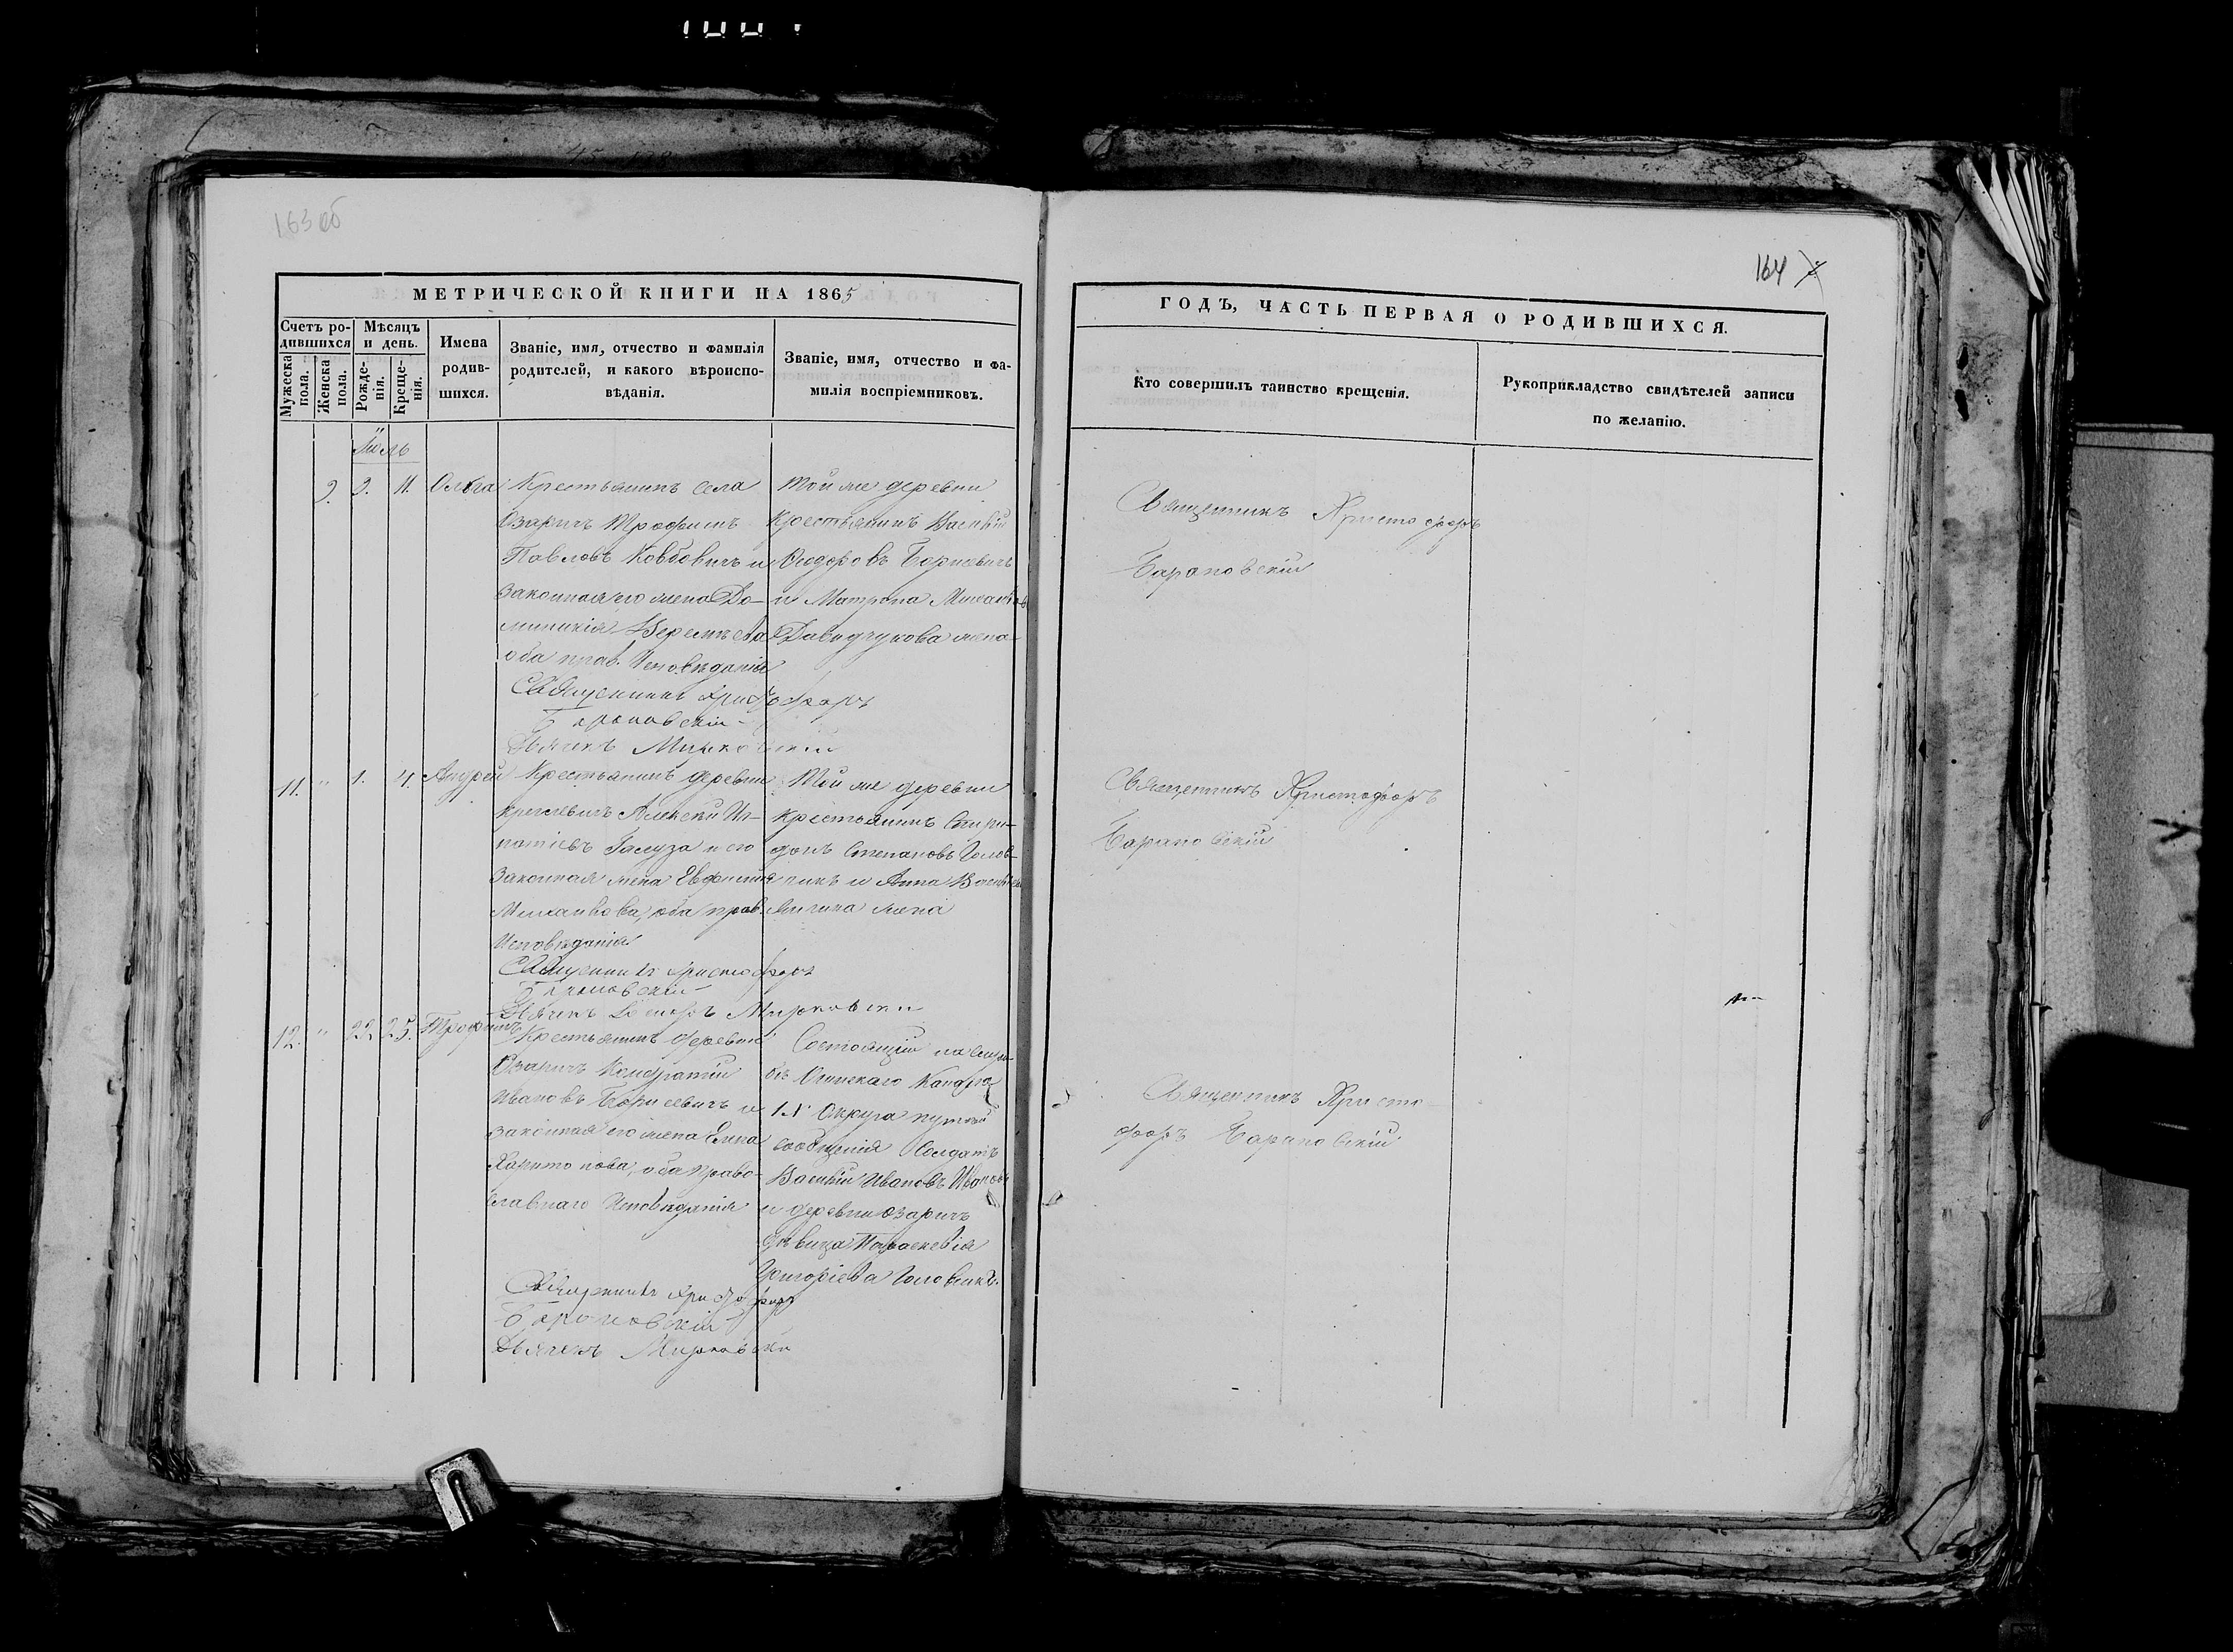 163 об
164
МЕТРИЧЕСКОЙ КНИГИ НА 1865
Счетъ родившихся
Мужеска пола.
Женска пола.
Мѣсяцъ и день.
Рожденія.
Крещенія.
Имена родившихся.
Званіе, имя, отчество и фамилія
родителей, и какого вѣроиспо-
вѣданія.
Званіе, имя, отчество и фа-
милія воспріемниковъ.
Іюль
9. 9. 11. Ольга
Крестьянинъ села
Озаричъ Трофимъ
Павловъ Ковбовичъ и
законная его жена До-
миникія
оба прав. Исповѣданія
Священникъ Христофоръ
Барановскій
Дьячекъ
Той же деревни
Крестьянинъ Василій
Ѳеодоровъ Борисевичъ
и Матрона
Давидчукова жена
11. " 1. 4. Андрей
Крестьянинъ деревни
Алексѣй Иг-
натіевъ Галуза и его
законная жена Евфимія
Михайлова, оба прав.
Исповѣданія
Священникъ Христофоръ
Барановскій
Дьячекъ
Той же деревни
Крестьянинъ Спири-
донъ Степановъ Голов-
чикъ и Анна
жена
12. " 22. 25. Трофимъ
Крестьянинъ деревни
Озаричъ Кондратій
Ивановъ Борисевичъ и
законная его жена Елена
Харитонова, оба право-
славнаго Исповѣданія
Священникъ Христофоръ
Барановскій
Дьячекъ
Состоящій на
Огинскаго
Округа путей
сообщенія Солдатъ
Василій Ивановъ Ивановъ
и деревни Озаричъ
дѣвица Параскевія
Григоріева
ГОДЪ, ЧАСТЬ ПЕРВАЯ О РОДИВШИХСЯ.
Кто совершилъ таинство крещенія.
Рукоприкладство свидѣтелей записи
по желанію.
Священникъ Христофоръ
Барановскій
Священникъ Христофоръ
Барановскій
Священникъ Христо-
форъ Барановскій